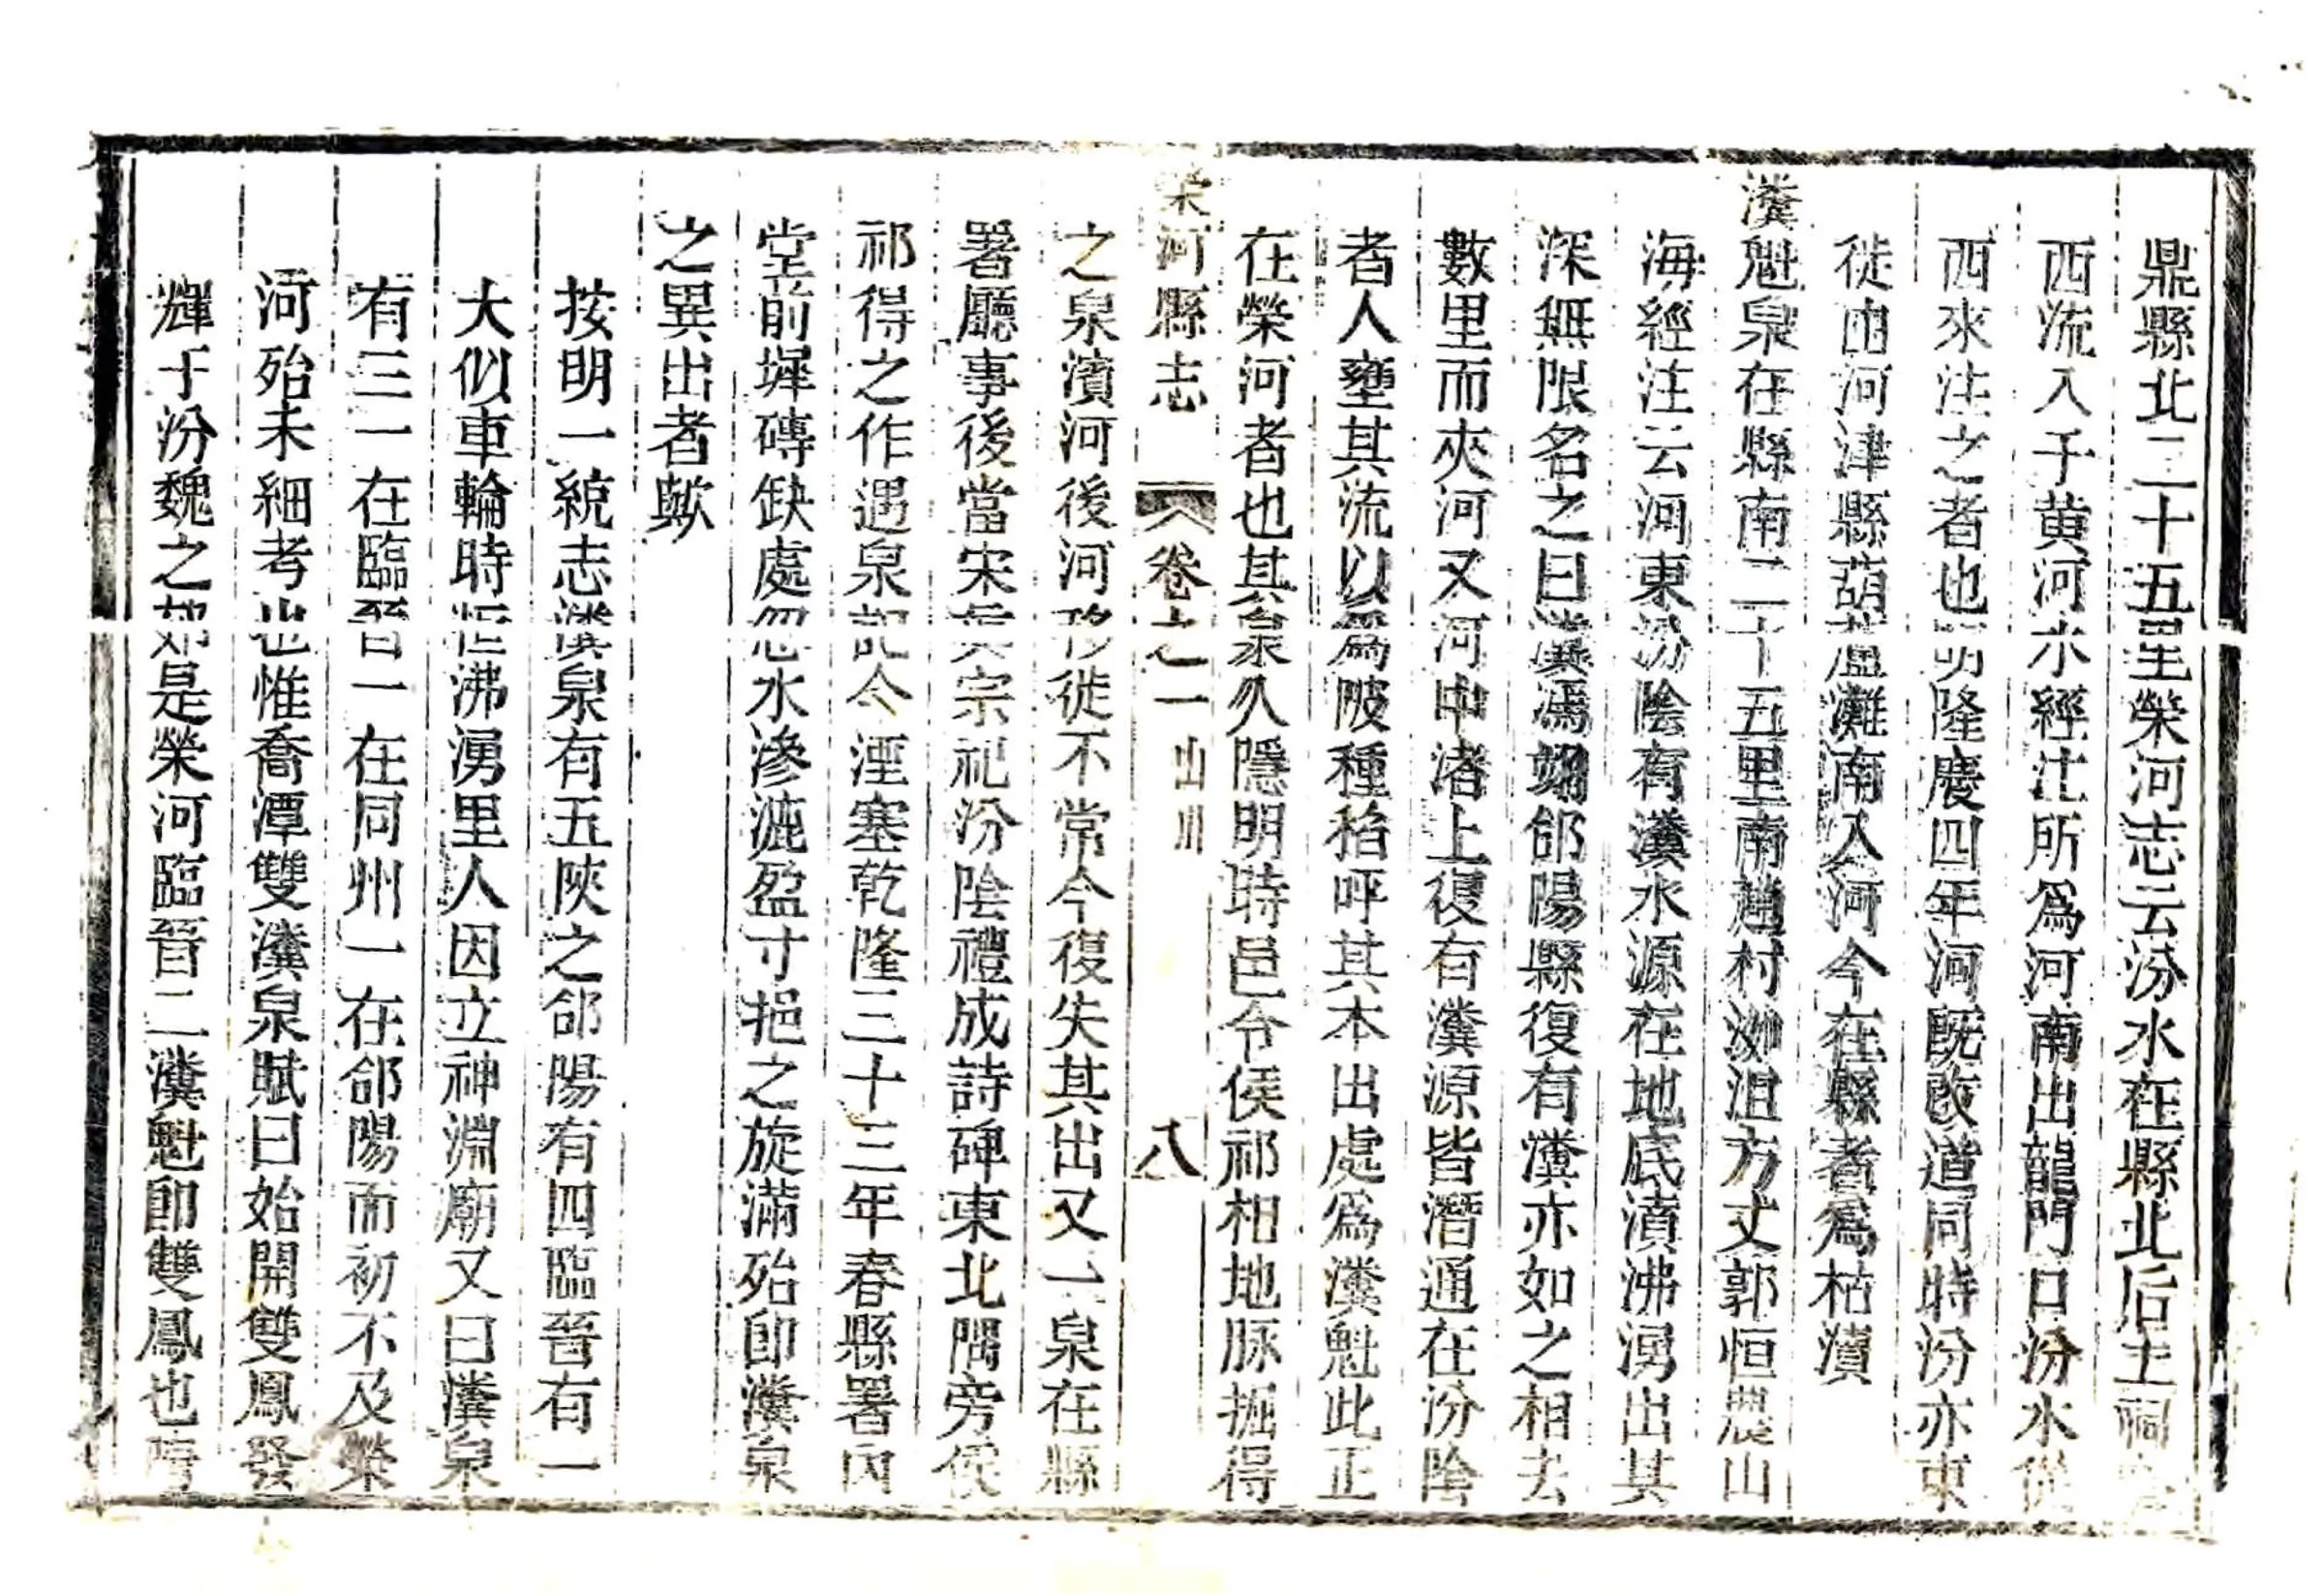 鼎縣北二十五里榮河志云汾水在縣北后土祠
西流入于黄河水經注所爲河南出龍門口汾水從
西來注之者也明隆慶四年河旣改道同時汾亦東
徙由河津縣葫蘆灘南入河今在縣者爲枯瀆
瀵魁泉在縣南二十五里南趙村泖沮方丈郭恒農山
海經注云河東汾陰有瀵水源在地底濆沸湧出其
深無限名之曰瀵馮翊郃陽縣復有瀵亦如之相去
數里而夾河又河中渚上復有瀵源皆潛通在汾陰
者人壅其流以爲陂種稻呼其本出處爲瀵魁此正
在榮河者也其泉久隱明時邑令侯祁相地脉掘得
榮河縣志 卷之一 山川 八
之泉濱河後河移徙不常今復失其出又一泉在縣
署廳事後當宋眞宗祀汾陰禮成詩碑東北隅旁侯
祁得之作遇泉記今湮塞乾隆三十三年春縣署內
堂前墀磚缺處忽水滲漉盈寸挹之旋滿殆卽瀵泉
之異出者歟
按明一統志瀵泉有五陜之郃陽有四臨晉有一
大似車輪時恒沸湧里人因立神淵廟又曰瀵泉
有三一在臨晉一在同州一在郃陽而初不及榮
河殆未細考也惟喬潭雙瀵泉賦曰始開雙鳳發
輝于汾魏之郊是榮河臨晉二瀵魁卽雙鳳也